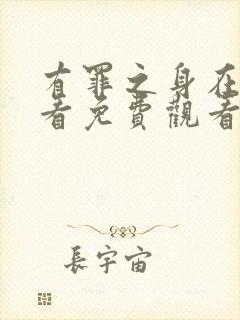 有罪之身在
看免費觀看
長宇宙